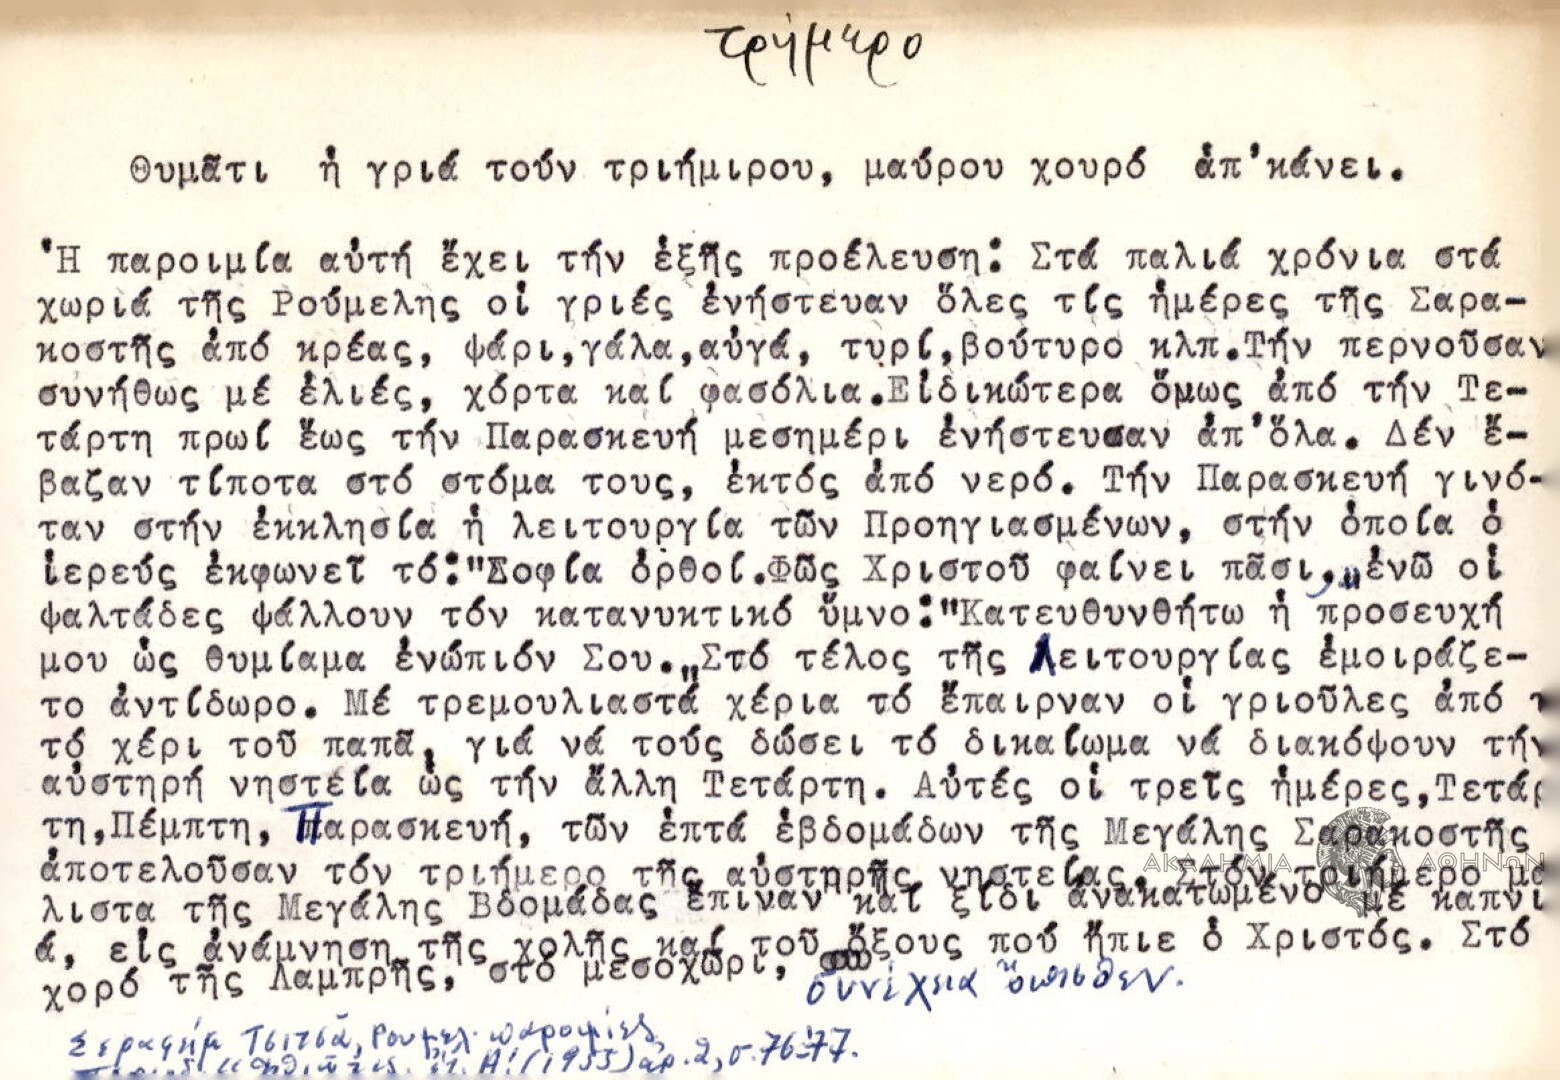 τριήμερο
Θυμᾶτι ἡ γριά τούν τριήμιρου, μαύρου χουρό ἀπ'κάνει.
Ἡ παροιμία αὐτή ἔχει τήν ἑξῆς προέλευση: Στά παλιά χρόνια στά
χωριά τῆς Ρούμελης οἱ γριές ἐνήστευαν ὅλες τίς ἡμέρες τῆς Σαρα-
κοστῆς ἀπό κρέας, ψάρι,γάλα,αὐγά, τυρί,βούτυρο κλπ.Τήν περνοῦσαν
συνήθως μέ ἐλιές, χόρτα καί φασόλια.Εἰδικώτερα ὅμως ἀπό τήν Τε-
τάρτη πρωί ἕως τήν Παρασκευή μεσημέρι ἐνήστευαν ἀπ'ὅλα. Δέν ἔ-
βαζαν τίποτα στό στόμα τους, ἐκτός ἀπό νερό. Τήν Παρασκευή γινό-
ταν στήν ἐκκλησία ἡ λειτουργία τῶν Προηγιασμένων, στήν ὁποία ὁ
ἱερεύς ἐκφωνεῖ τό:"Σοφία ὀρθοί.Φῶς Χριστοῦ φαίνει πᾶσι," ἐνῶ οἱ
ψαλτάδες ψάλλουν τόν κατανυκτικό ὕμνο:"Κατευθυνθήτω ἡ προσευχή
μου ὡς θυμίαμα ἐνώπιόν Σου."Στό τέλος τῆς Λειτουργίας ἐμοιράζε-
το ἀντίδωρο. Μέ τρεμουλιαστά χέρια τό ἔπαιρναν οἱ γριοῦλες ἀπό
τό χέρι τοῦ παπᾶ, γιά νά τούς δώσει τό δικαίωμα νά διακόψουν τήν
αὐστηρή νηστεία ὡς τήν ἄλλη Τετάρτη. Αὐτές οἱ τρεῖς ἡμέρες,Τετάρ
τη,Πέμπτη, Παρασκευή, τῶν ἑπτά ἑβδομάδων τῆς Μεγάλης Σαρακοστῆς
ἀποτελοῦσαν τόν τριήμερο τῆς αὐστηρῆς νηστείας. Στόν τριήμερο μά
λιστα τῆς Μεγάλης Βδομάδας ἔπιναν καί ξίδι ἀνακατωμένο μέ καπνι
ά, εἰς ἀνάμνηση τῆς χολῆς καί τοῦ ὄξους πού ἤπιε ὁ Χριστός. Στό
χορό τῆς Λαμπρῆς, στό μεσοχώρι,
συνέχεια ὄπισθεν.
Σεραφήμ Τσιτσᾶ, Ρουμελ. παροιμίες
ἔτ. Α! (1955) ἀρ. 2, σ. 76-77.
ΑΚΑΔΗΜΙΑ ΑΘΗΝΩΝ